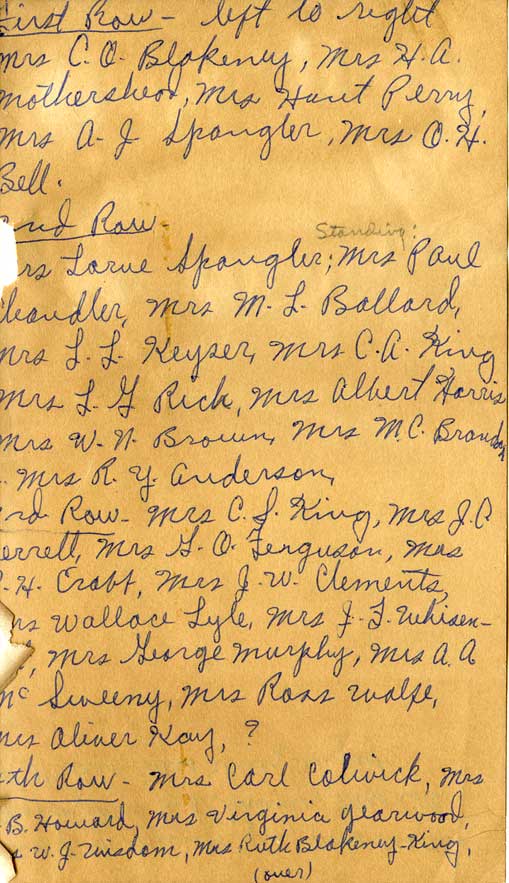 First Row - left to right
Mrs C. O. Blakeney, Mrs H. A.
Mothershead, Mrs Hunt Perry,
Mrs A. J. Spangler, Mrs O. H.
Bell.
2nd Row - Standing:
Mrs Lorue Spangler; Mrs Paul
Chandler, Mrs M. L. Ballard,
Mrs L. L. Keyser, Mrs C. A. King
Mrs L. G Rich, Mrs Albert Harris
Mrs W. N. Brown, Mrs M. C. Brandon
Mrs R. Y. Anderson,
3rd Row - Mrs C. L. King, Mrs J. C
errett, Mrs G. O. Ferguson, Mrs
. H. Crabt, Mrs J. W. Clements,
Mrs Wallace Lyle, Mrs J. L. Whisen-
, Mrs George Murphy, Mrs A. A
Mc Sweeny, Mrs Ross Wolfe,
Mrs Oliver Kay, ?
4th Row - Mrs Carl Colwick, Mrs
. B. Howard, Mrs Virginia Yearwood,
W. J. Wisdom, Mrs Ruth Blakeney-King,
(over)